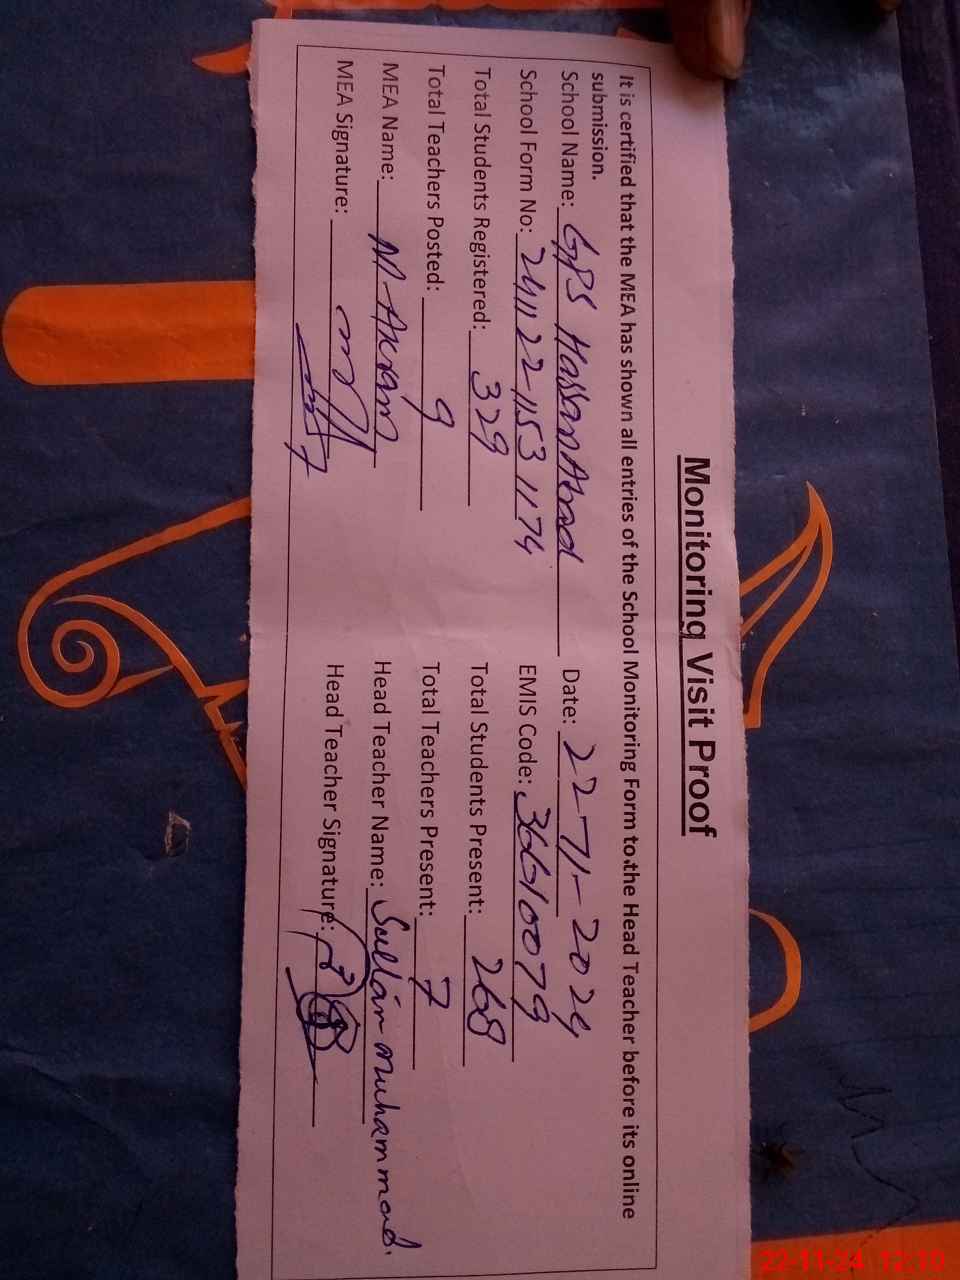 Monitoring Visit Proof
It is certified that the MEA has shown all entries of the School Monitoring Form to the Head Teacher before its online
submission.
School Name: GPS Hassan Abad Date: 22-11-2024
School Form No: 241122-1153 1174 EMIS Code: 36610079
Total Students Registered: 329 Total Students Present: 268
Total Teachers Posted: 9 Total Teachers Present: 7
MEA Name: M-Akram Head Teacher Name: Sultan muhammad.
MEA Signature: Head Teacher Signature:
22-11-24 12:10